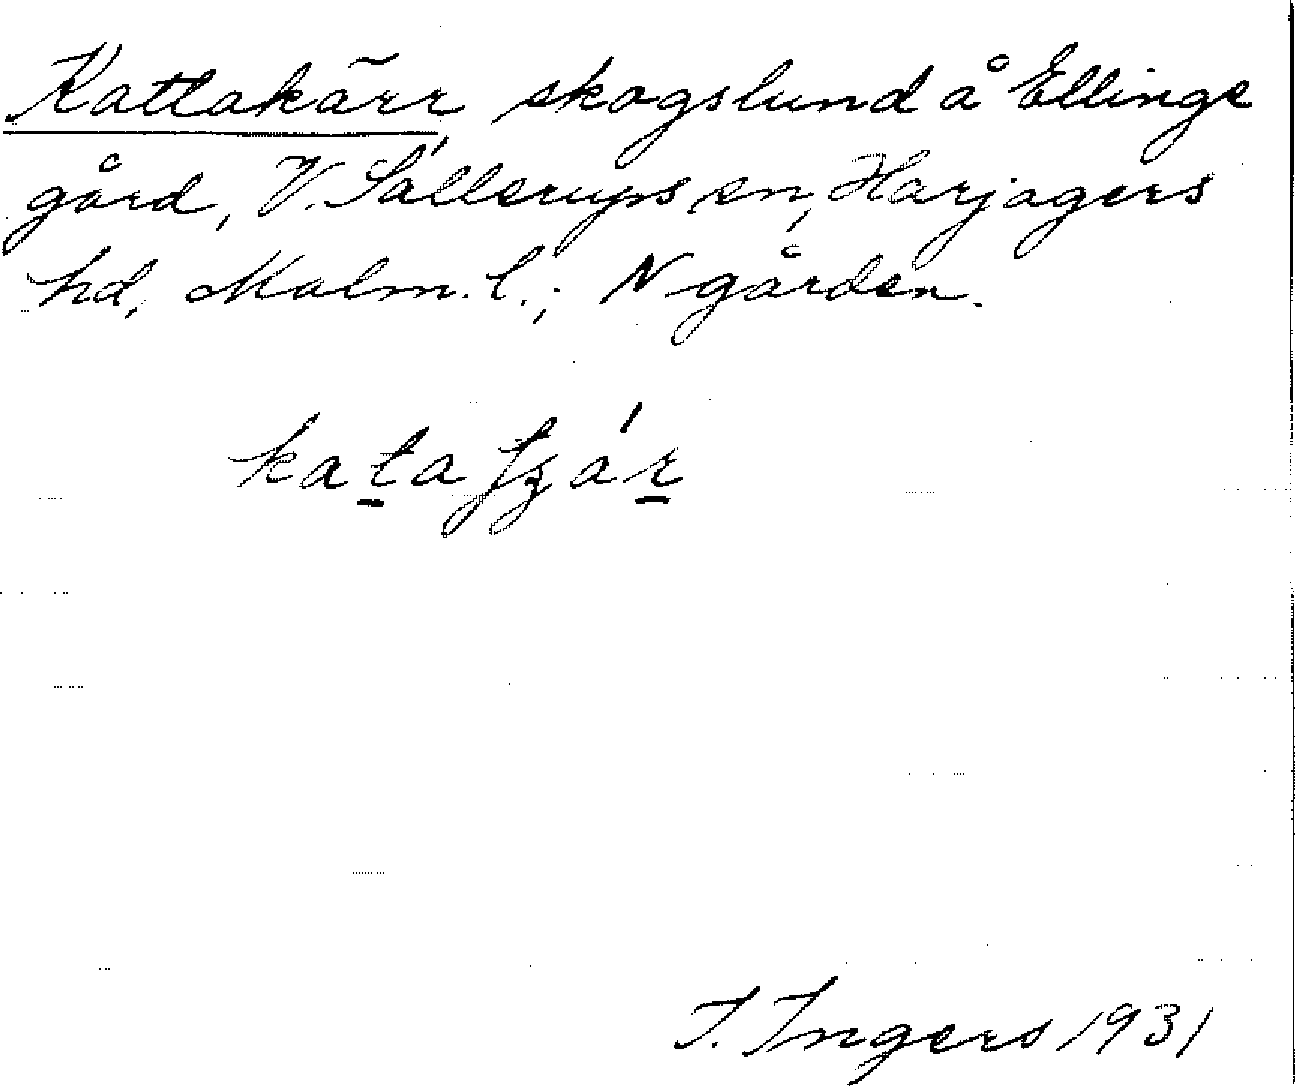 Kattakärr, skogslund å Ellinge
gård, V. Sallerups sn, Harjagers
hd, Malm. l.; N gården.
kata tʒár
I. Ingers 1931